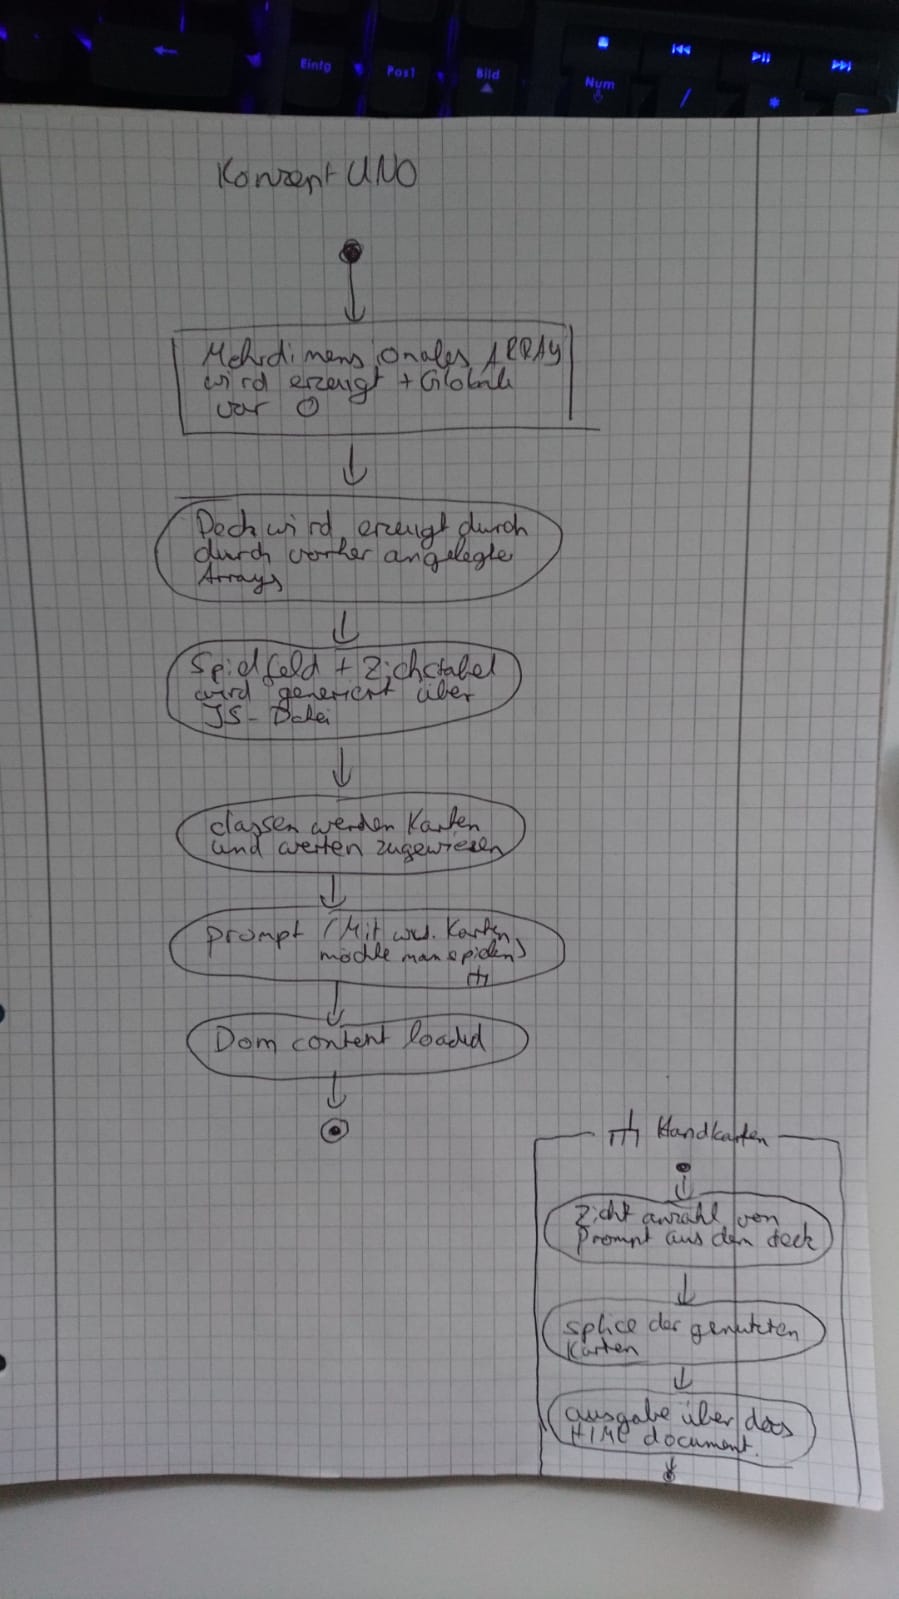 Einfg
Pos1
Bild
Num
/
*
-
Konzept UNO
Mehrdimensionales ARRAY
wird erzeugt + Globale
var O
Deck wird erzeugt durch
durch vorher angelegte
Arrays
Spielfeld + Ziehstabel
wird generiert über
JS-Datei
classen werden Karten
und werten zugewiesen
prompt (Mit wv. Karten
möchte man spielen)
Dom content loaded
Handkarten
Zieht anzahl von
Prompt aus dem deck
splice der genutzten
Karten
ausgabe über das
HTML document.